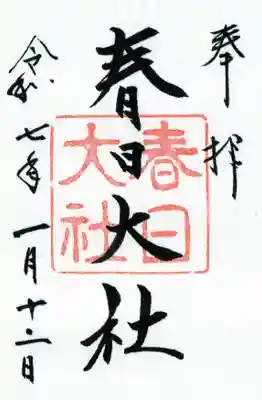 奉拝
春日大社
春日大社
令和七年一月十二日